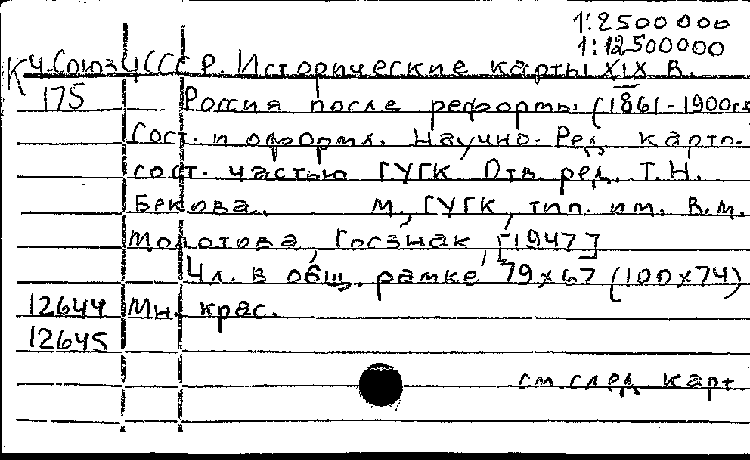 1:2500000
1:12500000
К Ч.Союз Ч СССР. Исторические карты XIX в.
175 Россия после реформы (1861-1900гг
Сост. и оформл. Научно-Ред. карто-
сост. частью ГУГК Отв. ред. Т.Н.
Бекова. М., ГУГК, тип. им. В.М.
Молотова, Госзнак, [1947]
4л. в общ. рамке 79х67 (100х74)
12644 Мн. крас.
12645
см. след. карт.